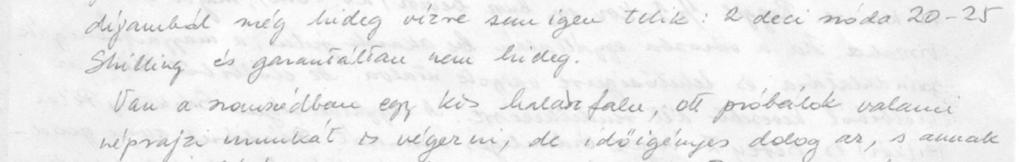 díjamból még hideg vízre sem igen telik: 2 deci szóda 20-25
Shilling és garantáltan nem hideg.
Van a szomszédban egy kis halászfalu, ott próbálok valami
néprajzi munkát is végezni, de időigényes dolog az, s annak